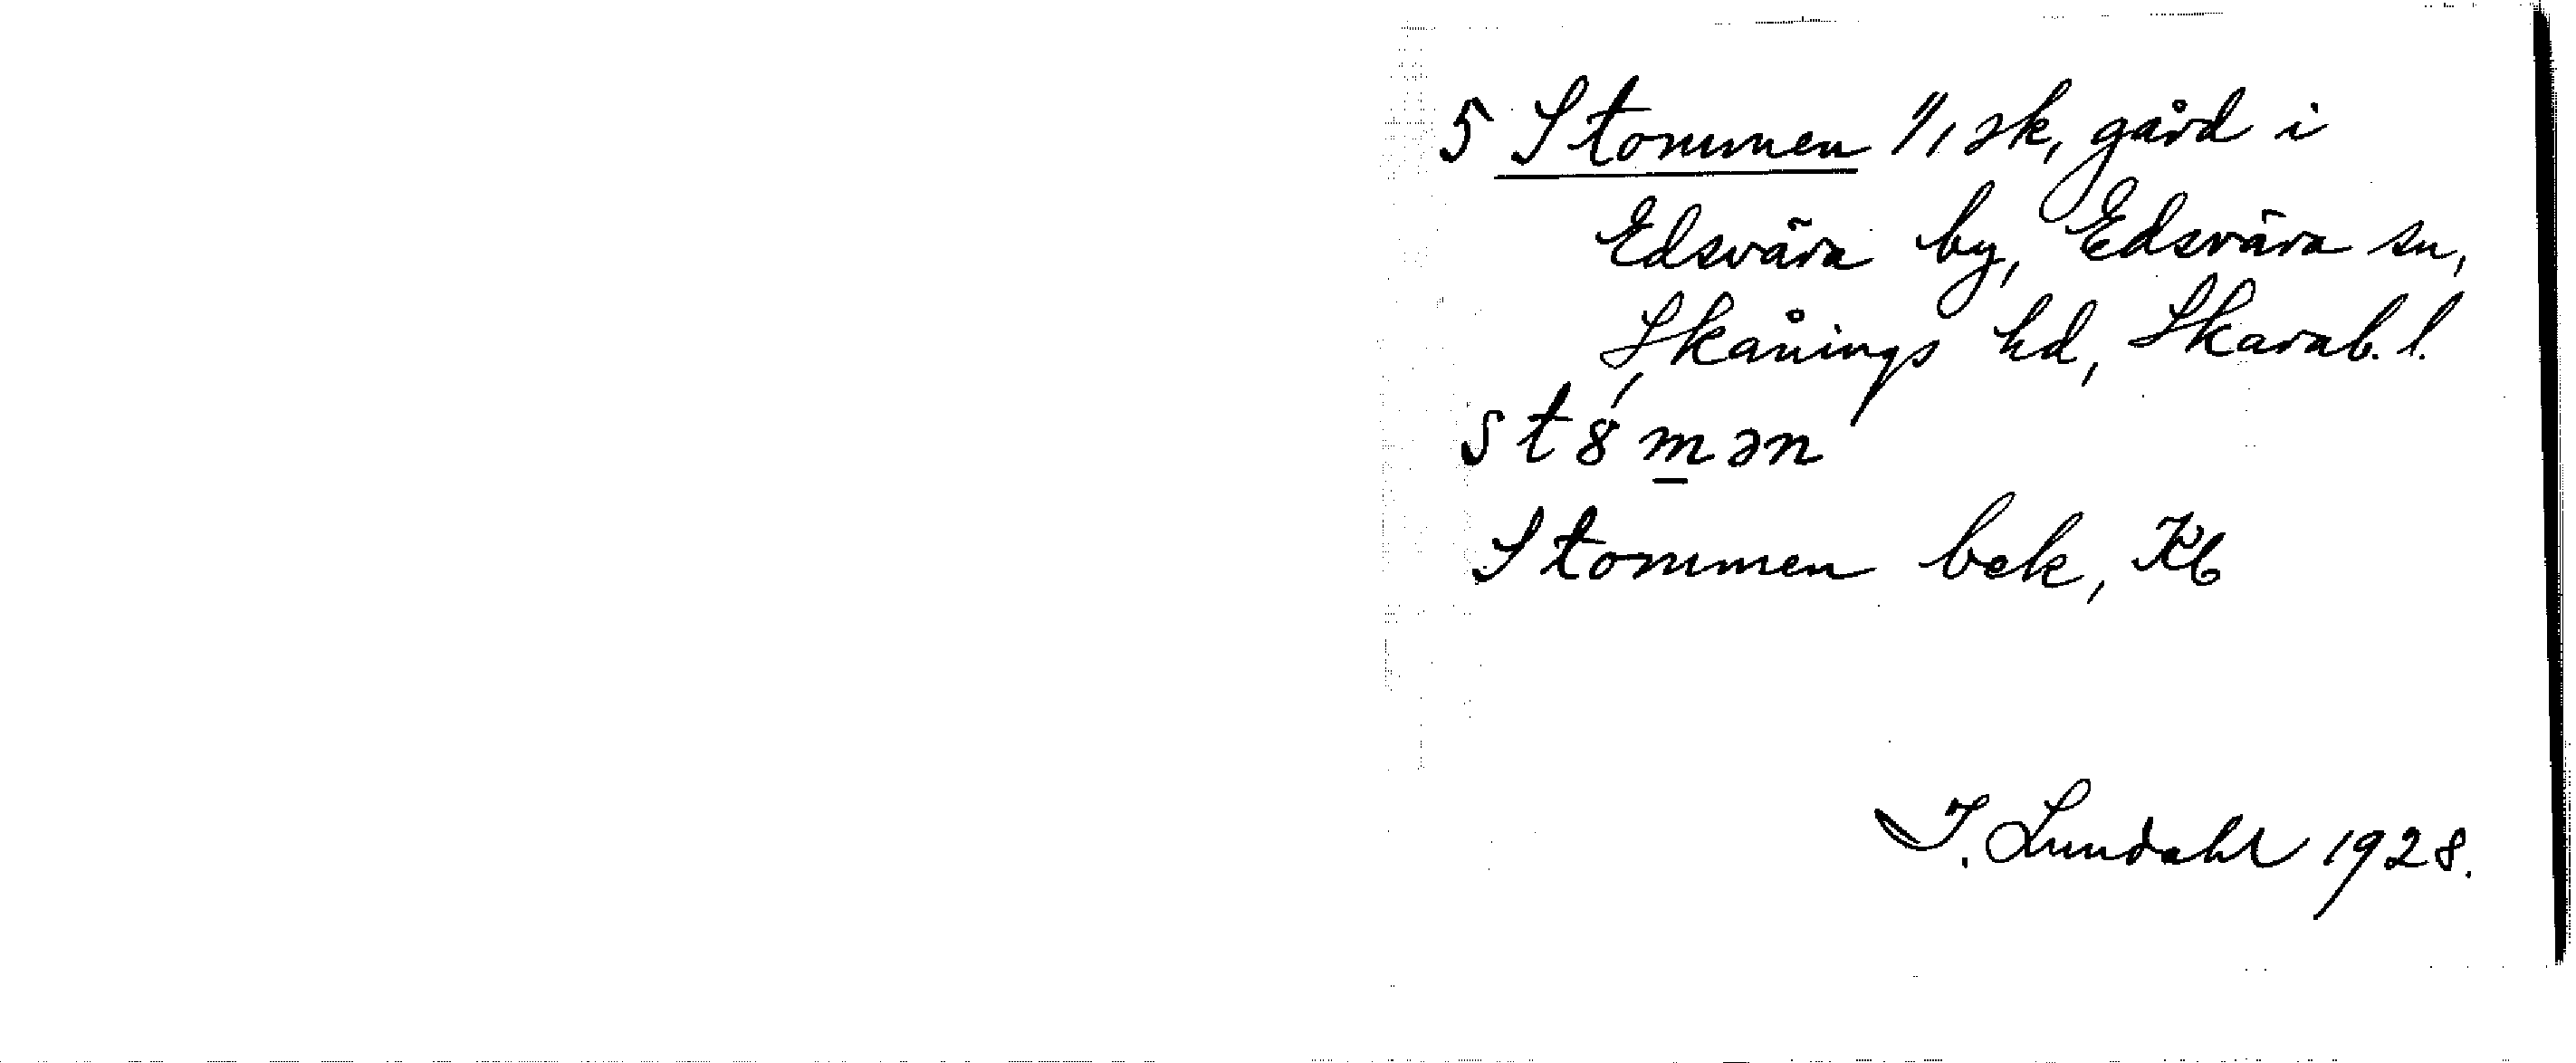 5 Stommen 1/1 sk, gård i
Edsvära by, Edsvära sn,
Skånings hd, Skarab. l.
st8́m̲ən
Stommen bek, Kb
I. Lundahl 1928.